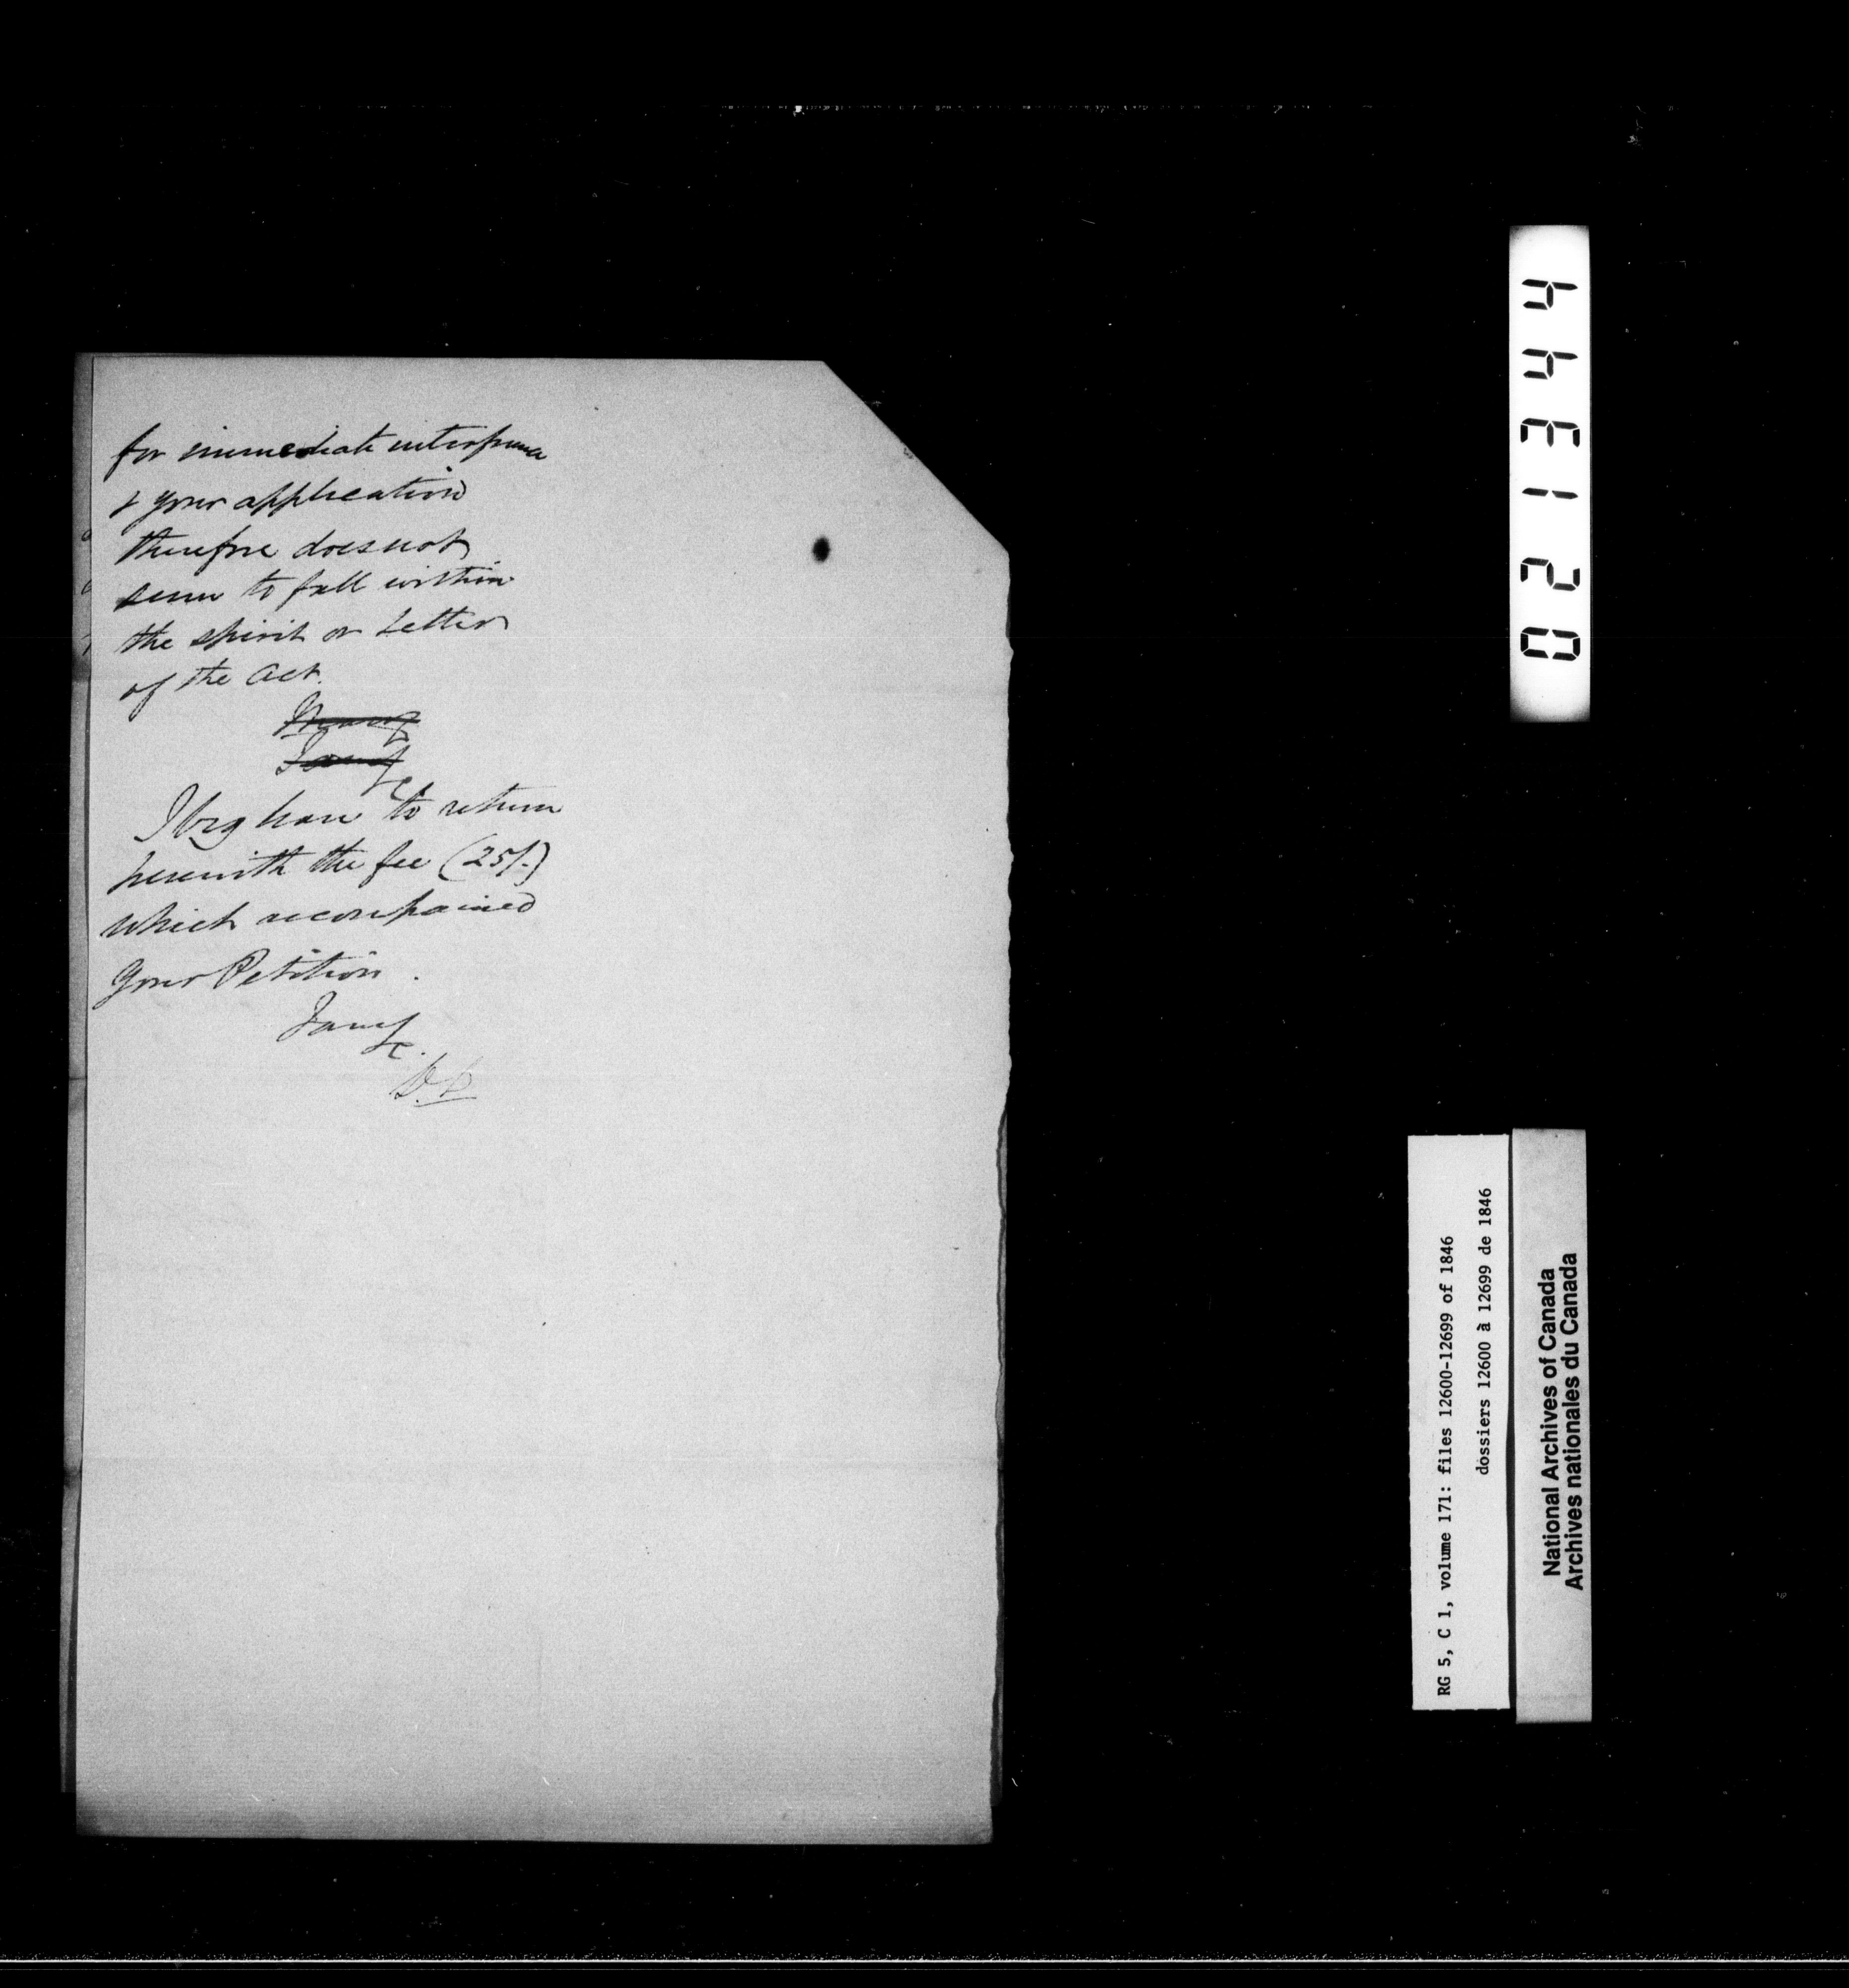 for immediate interference
& your application
therefore does not
seem to fall within
the spirit or letter
of the Act.
I beg leave to return
herewith the fee (25/-)
which accompained
your Petition.
I am &
c.
021344
RG 5, C 1, volume 171: files 12600-12699 of 1846
dossiers 12600 à 12699 de 1846
National Archives of Canada
Archives nationales du Canada